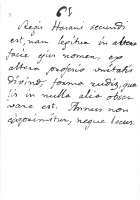 65
Regis Harani secundi
est, nam legitur in altera
facie ejus nomen, ex
altera propriò unitatis
divinæ forma rudis, qua
lis in nulla alia obser
vare est. Annus non
exprimitur, neque locus.